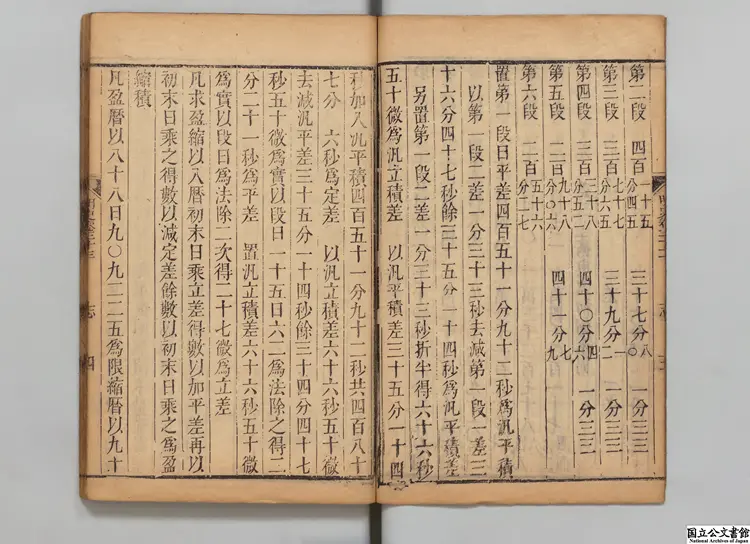 第二段 四百一十五分四五 三十七分八〇 一分三三
第三段 三百七十七分六五 三十九分一三 一分三三
第四段 三百三十八分五二 四十〇分四六 一分三三
第五段 二百九十八分〇六 四十一分七九
第六段 二百五十六分二七
置第一段日平差四百五十一分九十二秒爲汎平積
以第一段二差一分三十三秒去減第一段一差三
十六分四十七秒餘三十五分一十四秒爲汎平積差
另置第一段二差一分三十三秒折半得六十六秒
五十微爲汎立積差 以汎平積差三十五分一十四
秒加入汎平積四百五十一分九十二秒共四百八十
七分 六秒爲定差 以汎立積差六十六秒五十微
去減汎平差三十五分一十四秒餘三十四分四十七
秒五十微爲實以段日一十五日六二爲法除之得二
分二十一秒爲平差 置汎立積差六十六秒五十微
爲實以段日爲法除二次得二十七微爲立差
凡求盈縮以入曆初末日乘立差得數以加平差再以
初末日乘之得數以減定差餘數以初末日乘之爲盈
縮積
凡盈曆以八十八日九〇九二二五爲限縮曆以九十
志 四
国立公文書館
National Archives of Japan